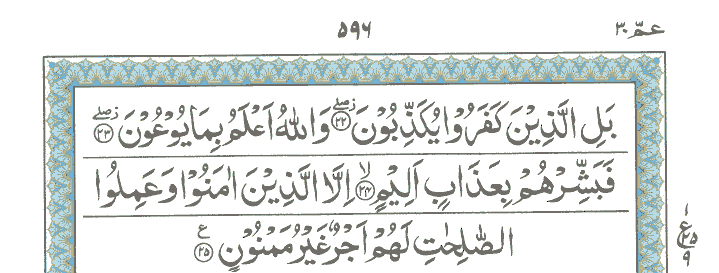 عمّ ٣٠ ٥٩٦
بَلِ الَّذِيْنَ كَفَرُوْا يُكَذِّبُوْنَ ﴿٢٢﴾ وَاللّٰهُ اَعْلَمُ بِمَا يُوْعُوْنَ ﴿٢٣﴾
فَبَشِّرْهُمْ بِعَذَابٍ اَلِيْمٍ ﴿٢٤﴾ اِلَّا الَّذِيْنَ اٰمَنُوْا وَعَمِلُوا
الصّٰلِحٰتِ لَهُمْ اَجْرٌ غَيْرُ مَمْنُوْنٍ ﴿٢٥﴾
١
ع ٢٥
٩